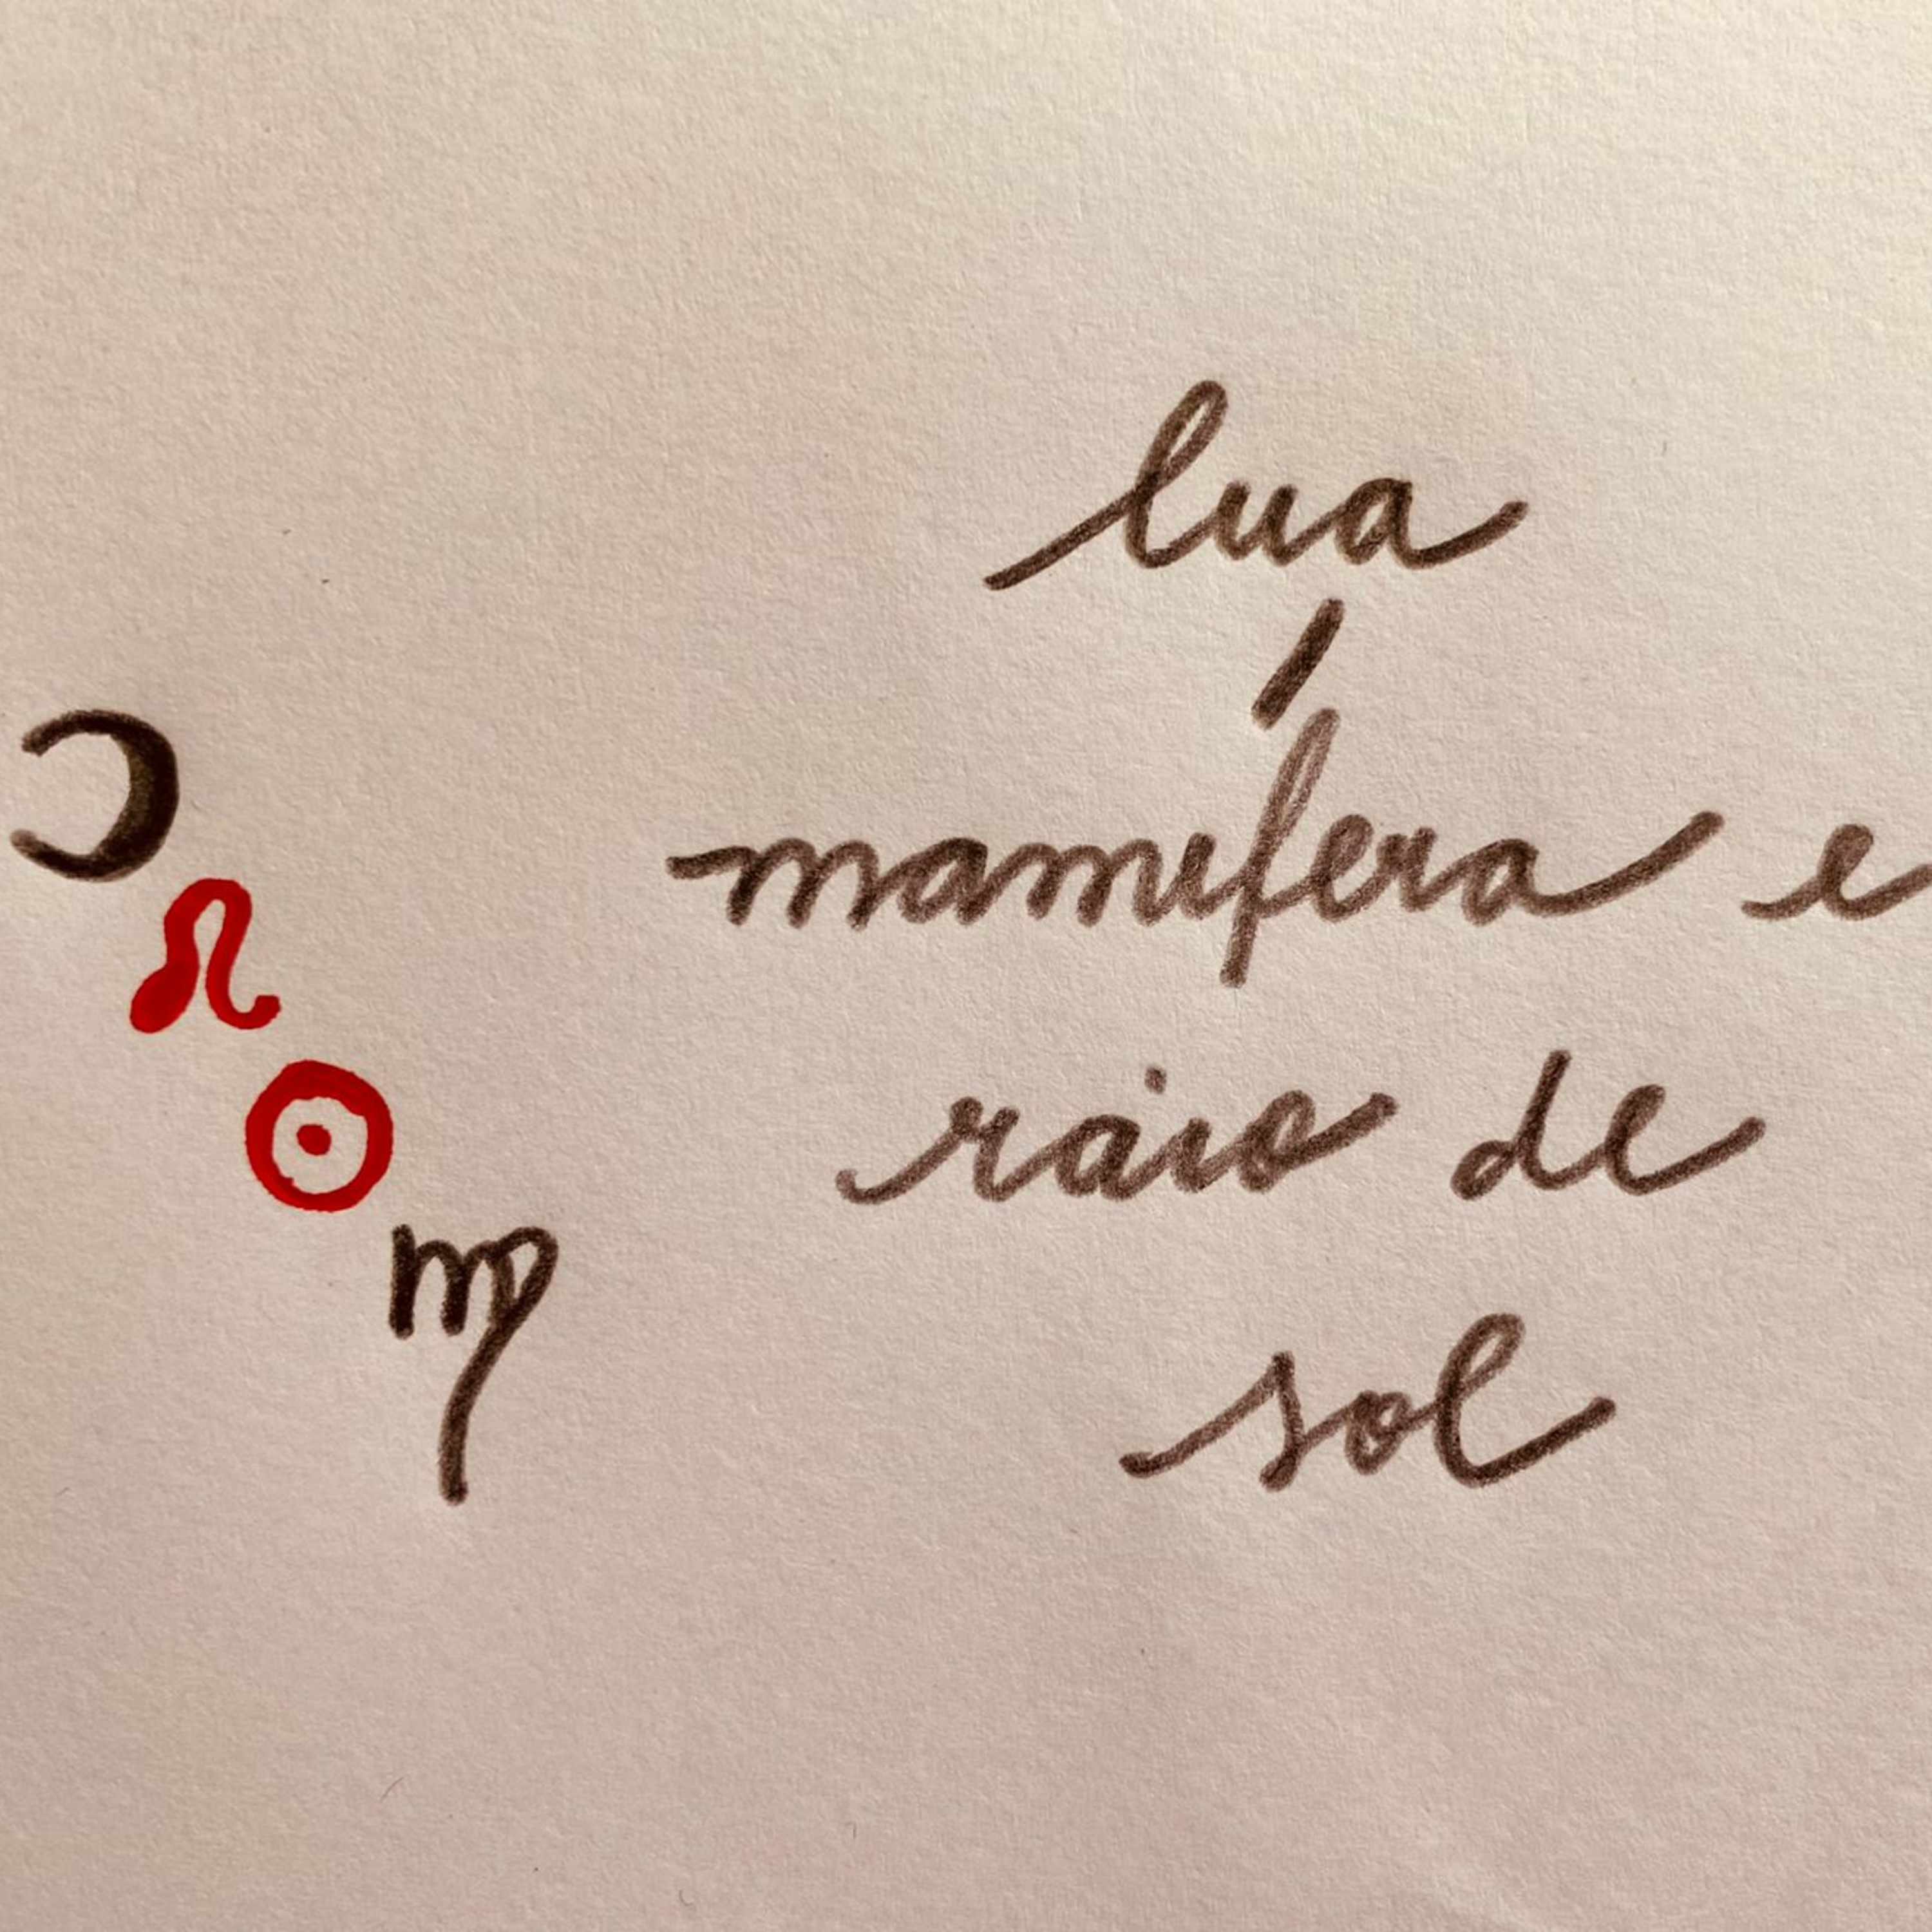 lua
mamífera e
raio de
sol